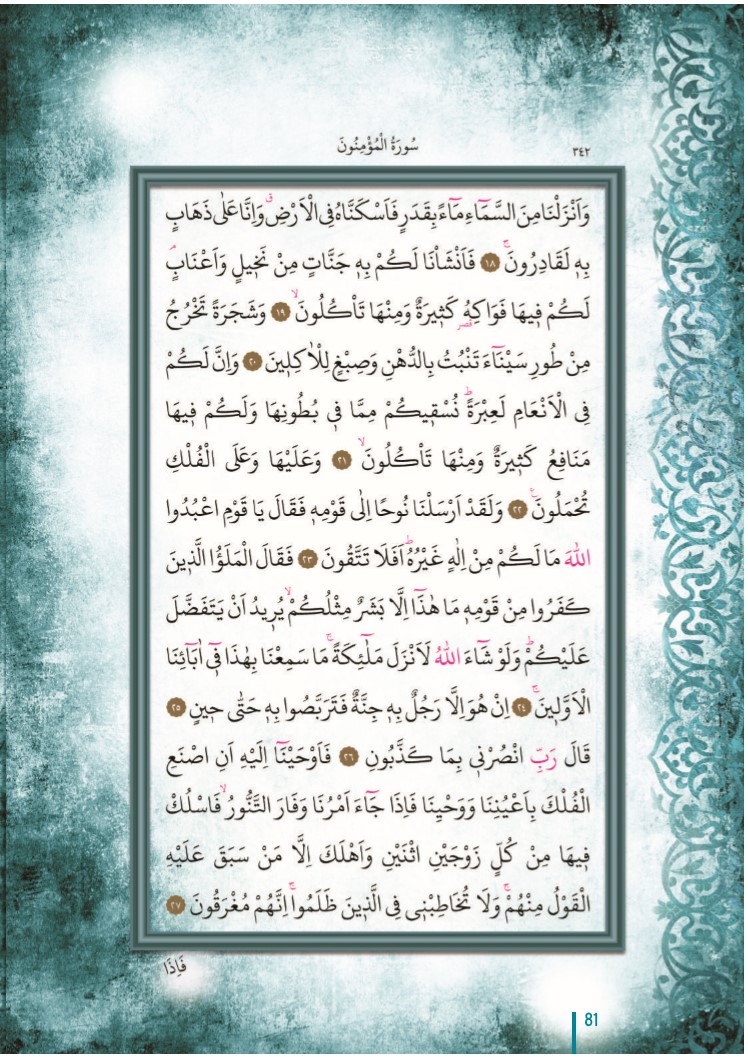 ٣٤٢
سُورَةُ الْمُؤْمِنُونَ
وَاَنْزَلْنَا مِنَ السَّمَٓاءِ مَٓاءً بِقَدَرٍ فَاَسْكَنَّاهُ فِي الْاَرْضِۗ وَاِنَّا عَلٰى ذَهَابٍ
بِه۪ لَقَادِرُونَۚ ﴿١٨﴾ فَاَنْشَأْنَا لَكُمْ بِه۪ جَنَّاتٍ مِنْ نَخ۪يلٍ وَاَعْنَابٍۢ
لَكُمْ ف۪يهَا فَوَاكِهُ كَث۪يرَةٌ وَمِنْهَا تَأْكُلُونَۙ ﴿١٩﴾ وَشَجَرَةً تَخْرُجُ
مِنْ طُورِ سَيْنَٓاءَ تَنْبُتُ بِالدُّهْنِ وَصِبْغٍ لِلْاٰكِل۪ينَ ﴿٢٠﴾ وَاِنَّ لَكُمْ
فِي الْاَنْعَامِ لَعِبْرَةًۜ نُسْق۪يكُمْ مِمَّا ف۪ي بُطُونِهَا وَلَكُمْ ف۪يهَا
مَنَافِعُ كَث۪يرَةٌ وَمِنْهَا تَأْكُلُونَۙ ﴿٢١﴾ وَعَلَيْهَا وَعَلَى الْفُلْكِ
تُحْمَلُونَ۟ ﴿٢٢﴾ وَلَقَدْ اَرْسَلْنَا نُوحًا اِلٰى قَوْمِه۪ فَقَالَ يَا قَوْمِ اعْبُدُوا
اللّٰهَ مَا لَكُمْ مِنْ اِلٰهٍ غَيْرُهُۜ اَفَلَا تَتَّقُونَ ﴿٢٣﴾ فَقَالَ الْمَلَؤُا الَّذ۪ينَ
كَفَرُوا مِنْ قَوْمِه۪ مَا هٰذَٓا اِلَّا بَشَرٌ مِثْلُكُمْۙ يُر۪يدُ اَنْ يَتَفَضَّلَ
عَلَيْكُمْۜ وَلَوْ شَٓاءَ اللّٰهُ لَاَنْزَلَ مَلٰٓئِكَةًۚ مَا سَمِعْنَا بِهٰذَا ف۪ٓي اٰبَٓائِنَا
الْاَوَّل۪ينَۚ ﴿٢٤﴾ اِنْ هُوَ اِلَّا رَجُلٌ بِه۪ جِنَّةٌ فَتَرَبَّصُوا بِه۪ حَتّٰى ح۪ينٍ ﴿٢٥﴾
قَالَ رَبِّ انْصُرْن۪ي بِمَا كَذَّبُونِ ﴿٢٦﴾ فَاَوْحَيْنَٓا اِلَيْهِ اَنِ اصْنَعِ
الْفُلْكَ بِاَعْيُنِنَا وَوَحْيِنَا فَاِذَا جَٓاءَ اَمْرُنَا وَفَارَ التَّنُّورُۙ فَاسْلُكْ
ف۪يهَا مِنْ كُلٍّ زَوْجَيْنِ اثْنَيْنِ وَاَهْلَكَ اِلَّا مَنْ سَبَقَ عَلَيْهِ
الْقَوْلُ مِنْهُمْۚ وَلَا تُخَاطِبْن۪ي فِي الَّذ۪ينَ ظَلَمُواۚ اِنَّهُمْ مُغْرَقُونَ ﴿٢٧﴾
فَاِذَا
81